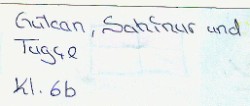 Gülcan, Sahinur und
Tugçe
Kl. 6b